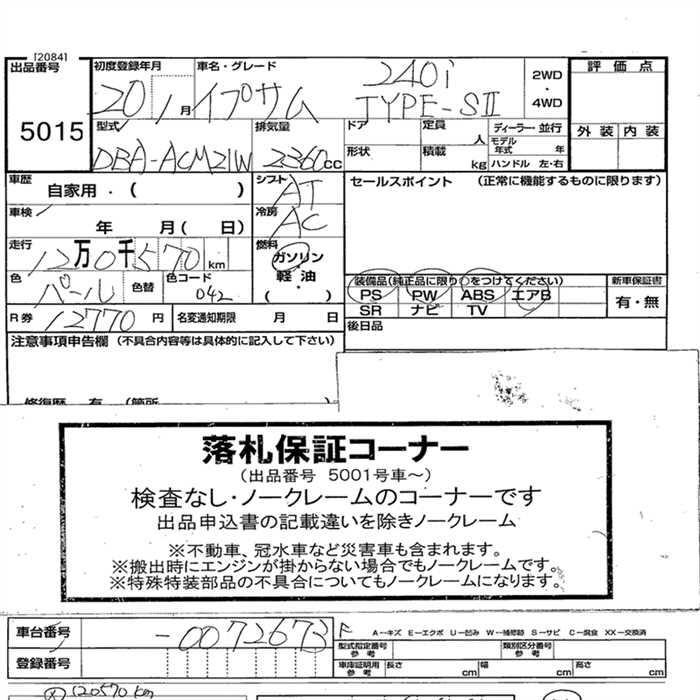 [2084]
出品番号 初度登録年月 車名・グレード 240i 2WD 評価点
5015 20 1月 イプサム TYPE-SII ・4WD
型式 排気量 ドア 定員 人 ディーラー・並行 外装 内装
DBA-ACM21W 2360cc 形状 積載 kg モデル年式 年 ハンドル 左・右
車歴 自家用・( ) シフト AT セールスポイント (正常に機能するものに限ります)
車検 年 月(日) 冷房 AC
走行 12万0千570km 燃料 ガソリン・軽油・( )
色 パール 色替 色コード 042 装備品(純正品に限り○をつけてください) 新車保証書
PS PW ABS エアB 有・無
SR ナビ TV
R券 12770円 名変通知期限 月 日 後日品
注意事項申告欄 (不具合内容等は具体的に記入して下さい)
修復歴 有 (箇所 )
落札保証コーナー
(出品番号 5001号車~)
検査なし・ノークレームのコーナーです
出品申込書の記載違いを除きノークレーム
※不動車、冠水車など災害車も含まれます。
※搬出時にエンジンが掛からない場合でもノークレームです。
※特殊特装部品の不具合についてもノークレームになります。
車台番号 -0072673 F A-キズ E-エクボ U-凹み W-補修跡 S-サビ C-腐食 XX-交換済
型式指定番号 参考 類別区分番号 参考
登録番号 車庫証明用 参考 長さ cm 幅 cm 高さ cm
120570km